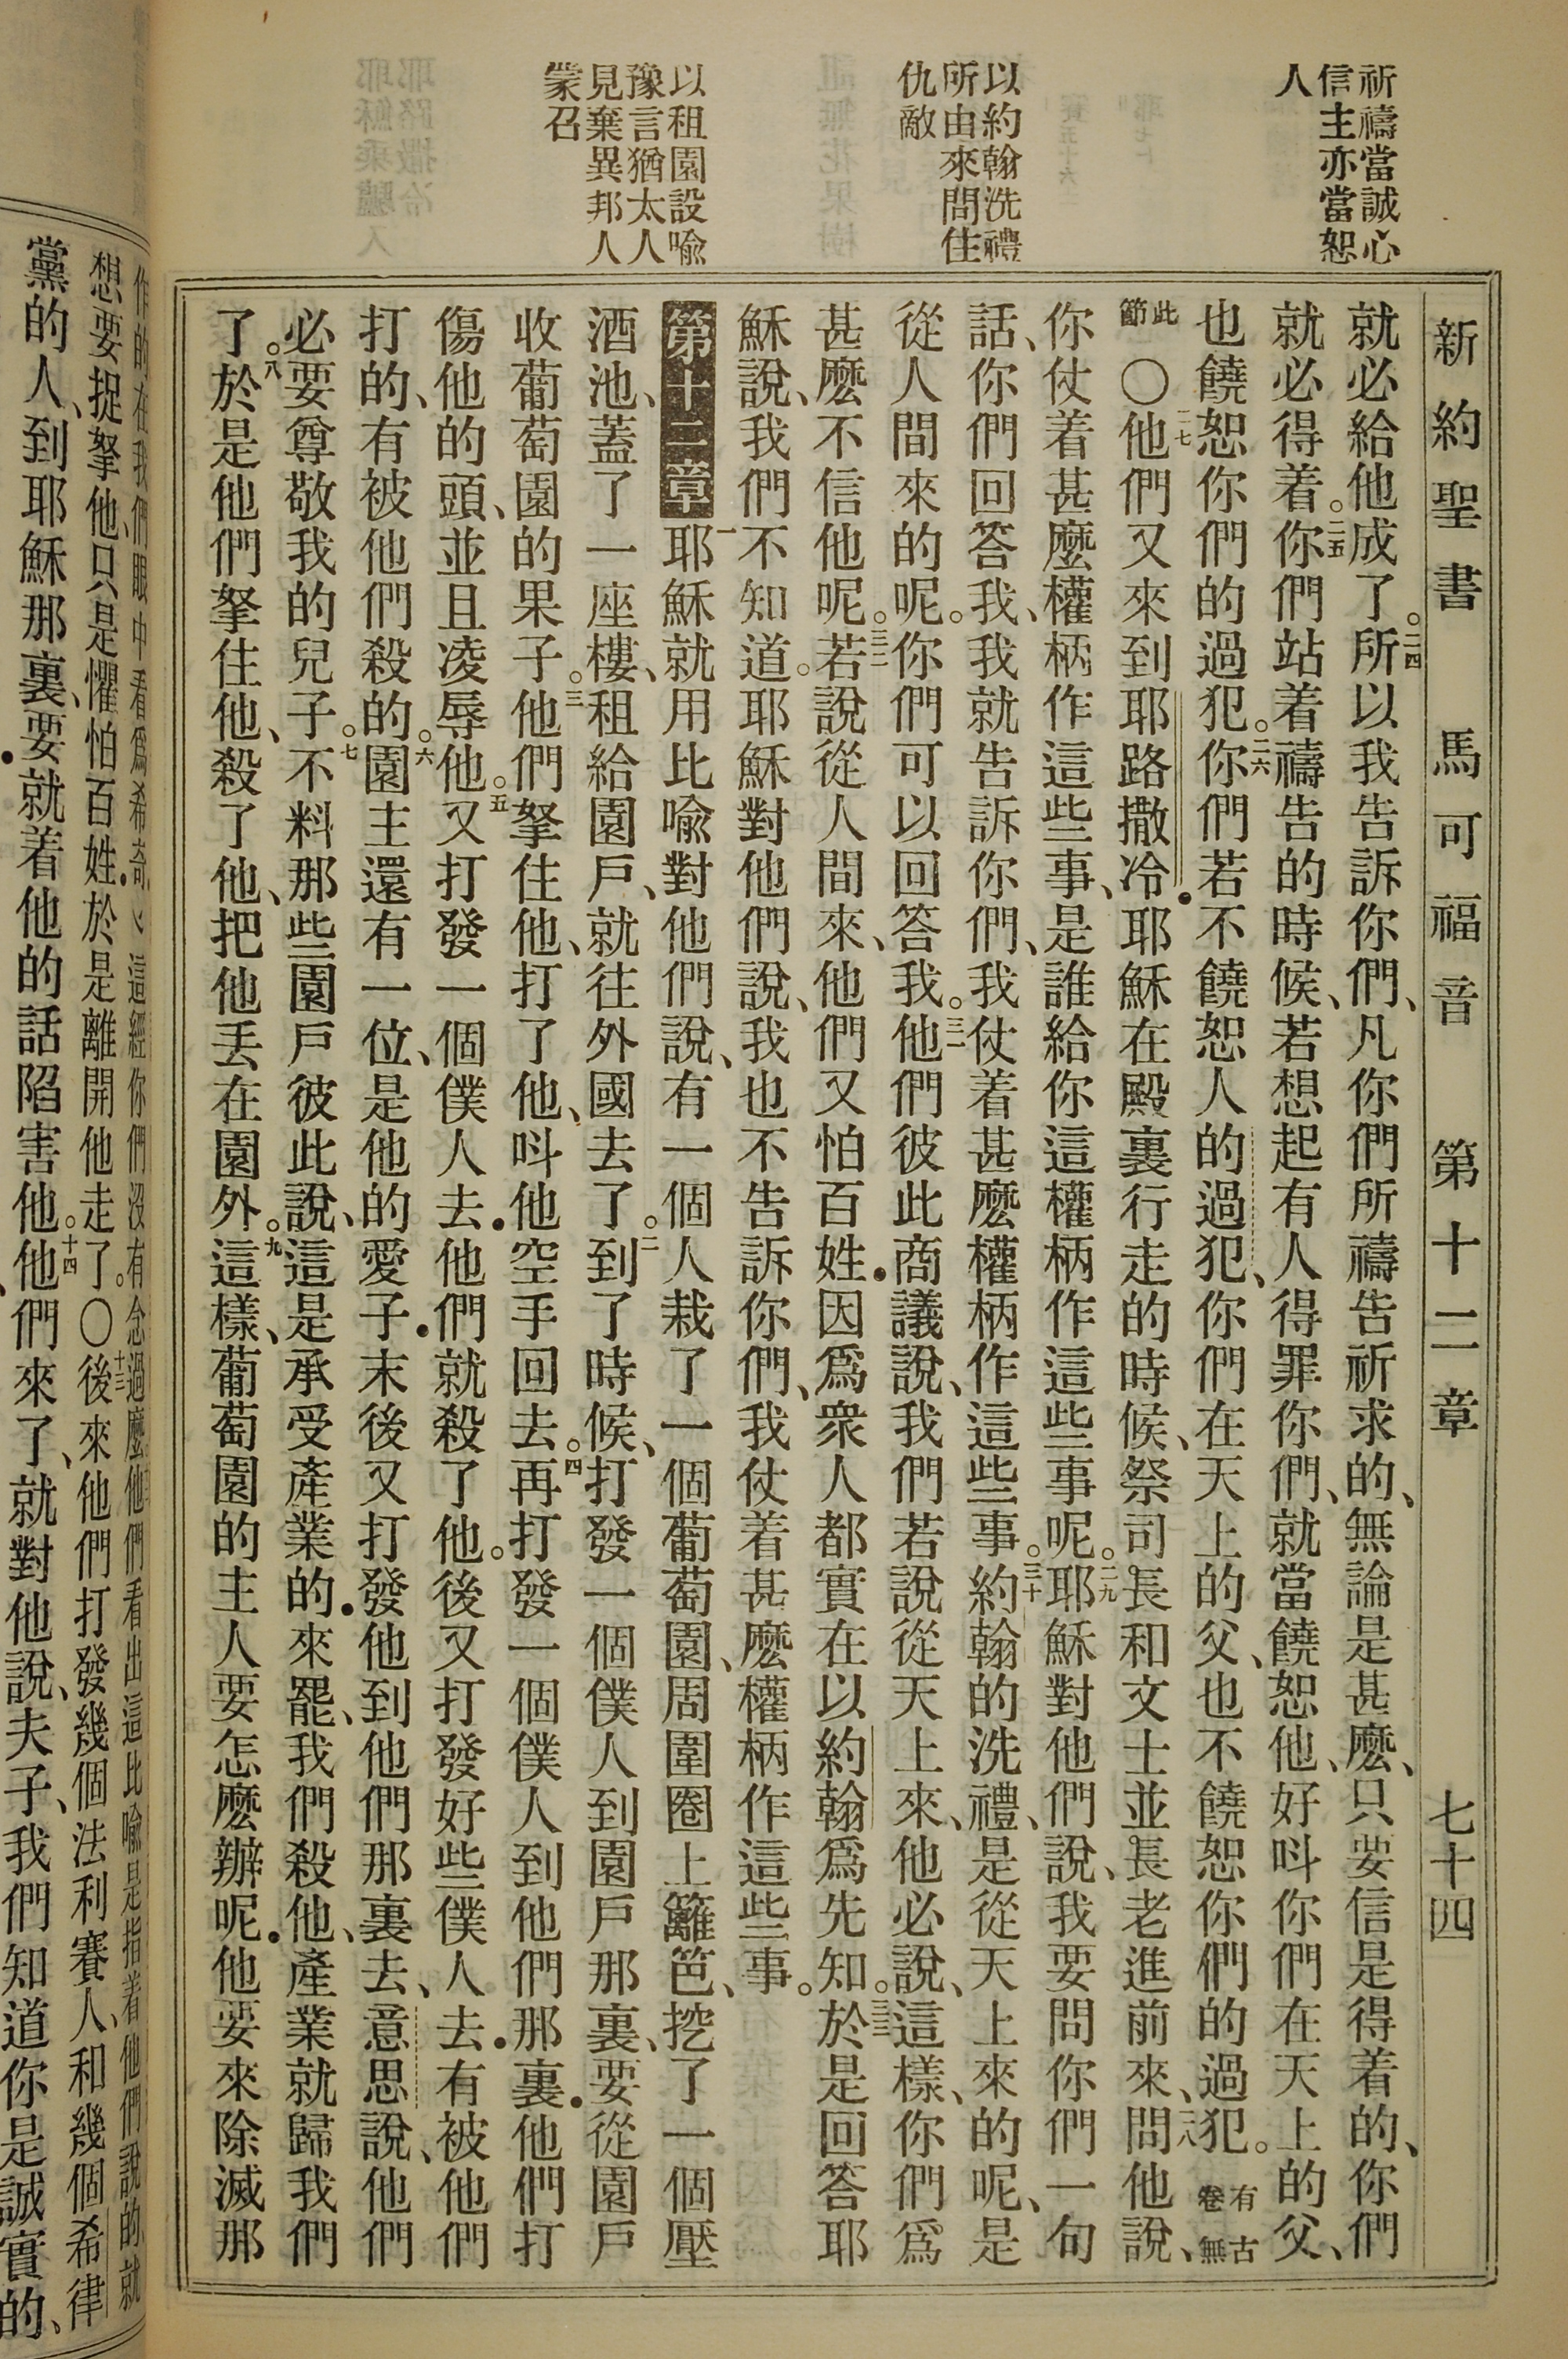 祈禱當誠心
信主亦當恕
人
以約翰洗禮
所由來問住
仇敵
以租園設喻
豫言猶太人
見棄異邦人
蒙召
新約聖書 馬可福音 第十二章 七十四
就必給他成了。二四所以我告訴你們、凡你們所禱告祈求的、無論是甚麽、只要信是得着的、你們
就必得着。二五你們站着禱告的時候、若想起有人得罪你們、就當饒恕他、好呌你們在天上的父、
也饒恕你們的過犯。二六你們若不饒恕人的過犯、你們在天上的父、也不饒恕你們的過犯。有古卷無
此節○二七他們又來到耶路撒冷•耶穌在殿裏行走的時候、祭司長和文士並長老進前來、二八問他說、
你仗着甚麽權柄作這些事、是誰給你這權柄作這些事呢。二九耶穌對他們說、我要問你們一句
話、你們回答我、我就告訴你們、我仗着甚麽權柄作這些事。三十約翰的洗禮、是從天上來的呢、是
從人間來的呢。你們可以回答我。三一他們彼此商議說、我們若說從天上來、他必說、這樣、你們爲
甚麽不信他呢。三二若說從人間來、他們又怕百姓•因爲衆人都實在以約翰爲先知。三三於是回答耶
穌說、我們不知道。耶穌對他們說、我也不告訴你們、我仗着甚麽權柄作這些事。
第十二章 一耶穌就用比喻對他們說、有一個人栽了一個葡萄園、周圍圈上籬笆、挖了一個壓
酒池、蓋了一座樓、租給園戶、就往外國去了。二到了時候、打發一個僕人到園戶那裏、要從園戶
收葡萄園的果子。三他們拏住他、打了他、呌他空手回去。四再打發一個僕人到他們那裏•他們打
傷他的頭、並且凌辱他。五又打發一個僕人去•他們就殺了他。後又打發好些僕人去•有被他們
打的、有被他們殺的。六園主還有一位、是他的愛子•末後又打發他到他們那裏去、意思說、他們
必要尊敬我的兒子。七不料那些園戶彼此說、這是承受產業的•來罷、我們殺他、產業就歸我們
了。八於是他們拏住他、殺了他、把他丟在園外。九這樣、葡萄園的主人要怎麽辦呢•他要來除滅那
作的在我們眼中看爲希奇、這經你們沒有念過麽他們看出這比喻是指着他們說的、就
想要捉拏他、只是懼怕百姓•於是離開他走了。○十三後來他們打發幾個法利賽人、和幾個希律
黨的人、到耶穌那裏、要就着他的話陷害他。十四他們來了、就對他說、夫子、我們知道你是誠實的、